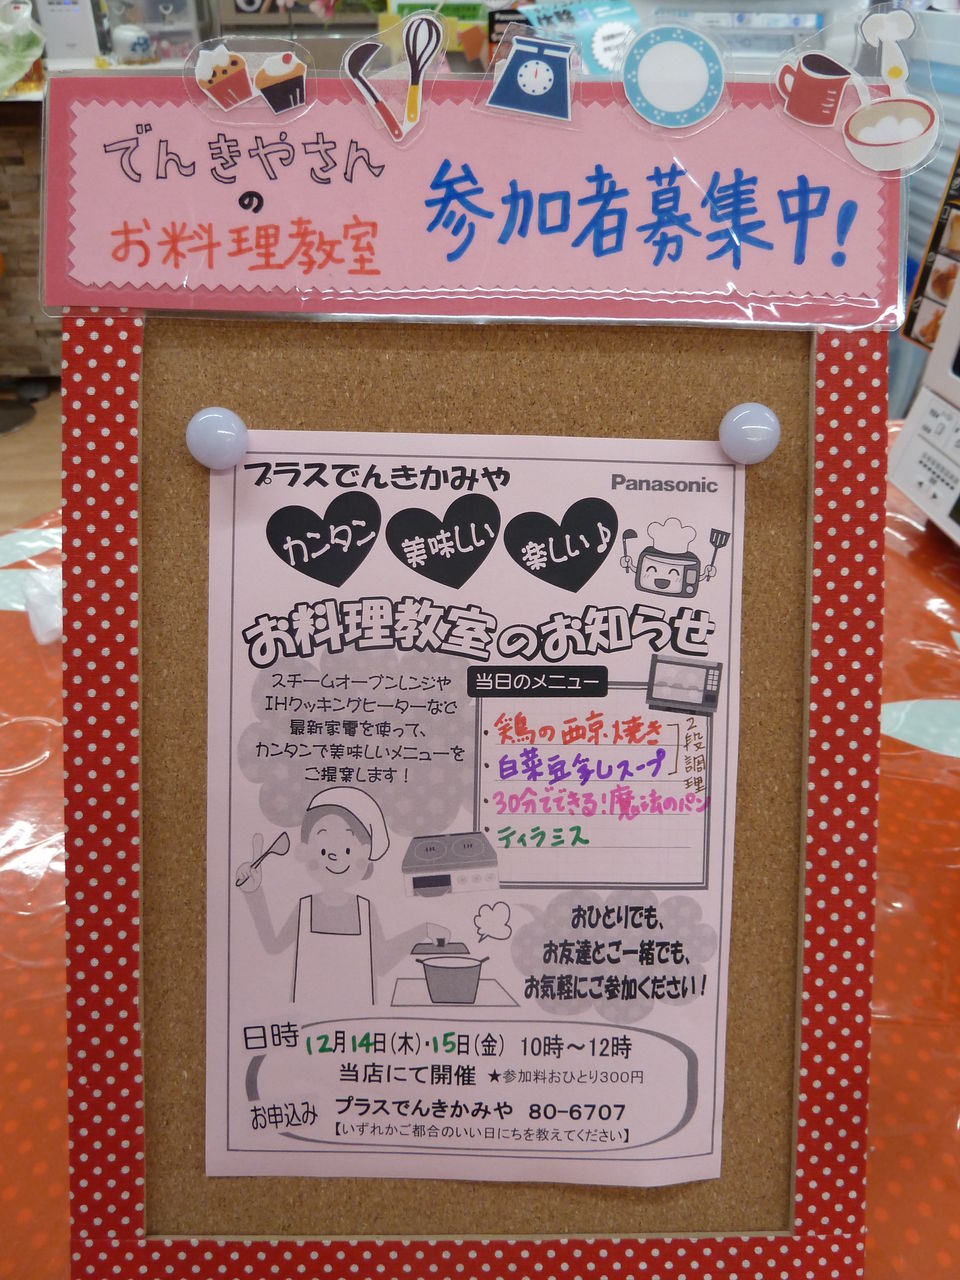 でんきやさん
の
お料理教室
参加者募集中!
プラスでんきかみや
Panasonic
カンタン
美味しい
楽しい♪
お料理教室のお知らせ
スチームオーブンレンジや
IHクッキングヒーターなど
最新家電を使って、
カンタンで美味しいメニューを
ご提案します!
当日のメニュー
・鶏の西京焼き
・白菜豆乳しスープ
2段調理
・30分でできる!魔法のパン
・ティラミス
おひとりでも、
お友達とご一緒でも、
お気軽にご参加ください!
日時 12月14日(木)・15日(金) 10時~12時
当店にて開催 ★参加料おひとり300円
お申込み プラスでんきかみや 80-6707
【いずれかご都合のいい日にちを教えてください】